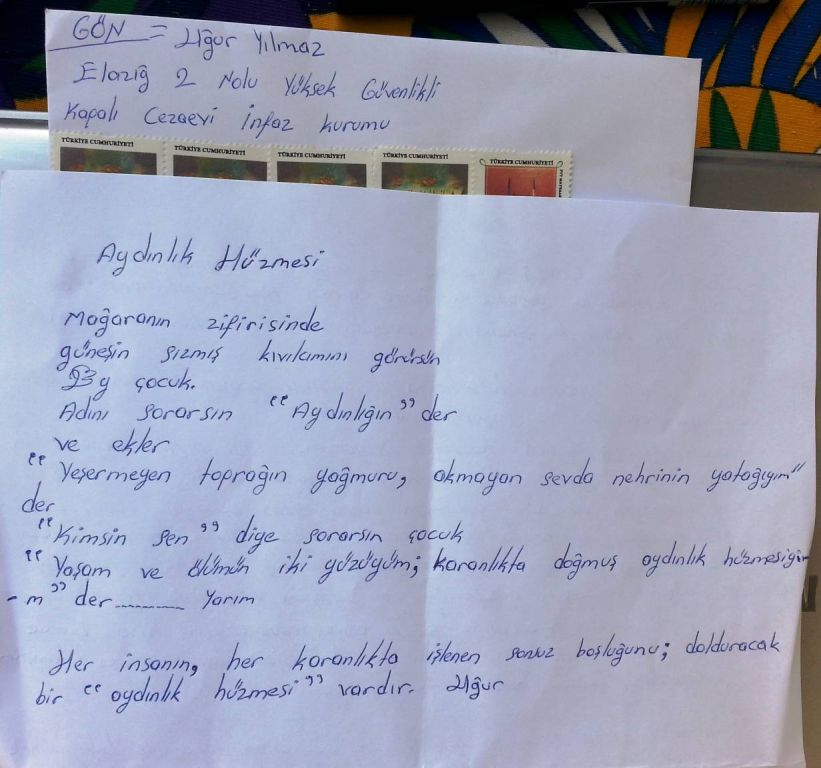 GÖN = Uğur Yılmaz
Elazığ 2 Nolu Yüksek Güvenlikli
Kapalı Cezaevi İnfaz Kurumu
TÜRKİYE CUMHURİYETİ TÜRKİYE CUMHURİYETİ TÜRKİYE CUMHURİYETİ TÜRKİYE CUMHURİYETİ TÜRKİYE CUMHURİYETİ
Aydınlık Hüzmesi
Mağaranın zifirisinde
güneşin sızmış kıvılcımını görürsün
Ey çocuk.
Adını sorarsın "Aydınlığın" der
ve ekler
"Yeşermeyen toprağın yağmuru, akmayan sevda nehrinin yatağıyım"
der
"Kimsin sen" diye sorarsın çocuk
"Yaşam ve ölümün iki yüzüyüm; karanlıkta doğmuş aydınlık hüzmesiyi-
-m" der........ Yarım
Her insanın, her karanlıkta işlenen sonsuz boşluğunu; dolduracak
bir "aydınlık hüzmesi" vardır. Uğur